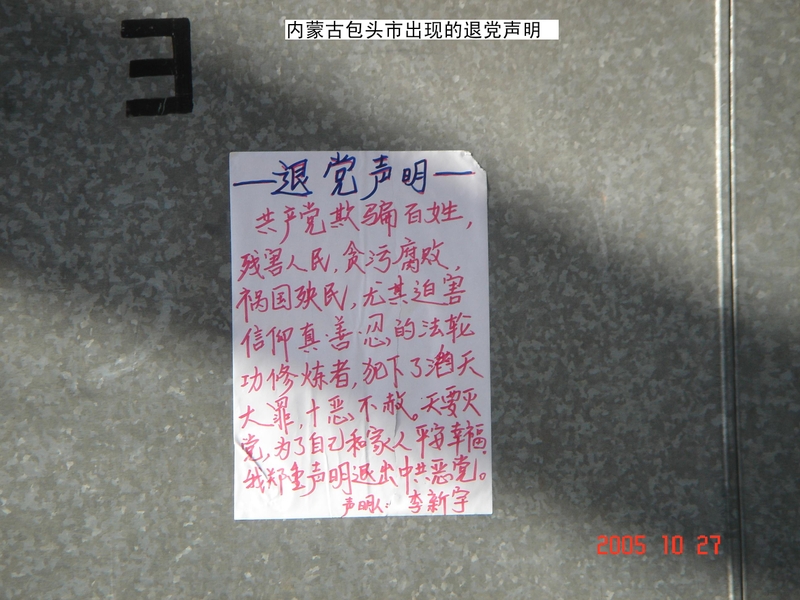 内蒙古包头市出现的退党声明
E
—退党声明—
共产党欺骗百姓，
残害人民，贪污腐败，
祸国殃民，尤其迫害
信仰真·善·忍的法轮
功修炼者，犯下了滔天
大罪，十恶不赦。天要灭
党，为了自己和家人平安幸福，
我郑重声明退出中共恶党。
声明人：李新宇
2005 10 27